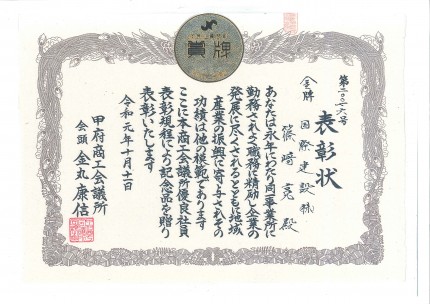 賞牌
第二〇三六号
表彰状
金牌
国際建設㈱
篠﨑 克 殿
あなたは永年にわたり同一事業所に
勤務されよく職務に精励し企業の
発展に尽くされるとともに地域
産業の振興に寄与されその
功績は他の模範であります
ここに本商工会議所優良社員
表彰規程により記念品を贈り
表彰いたします
令和元年十月十一日
甲府商工会議所
会頭 金丸康信